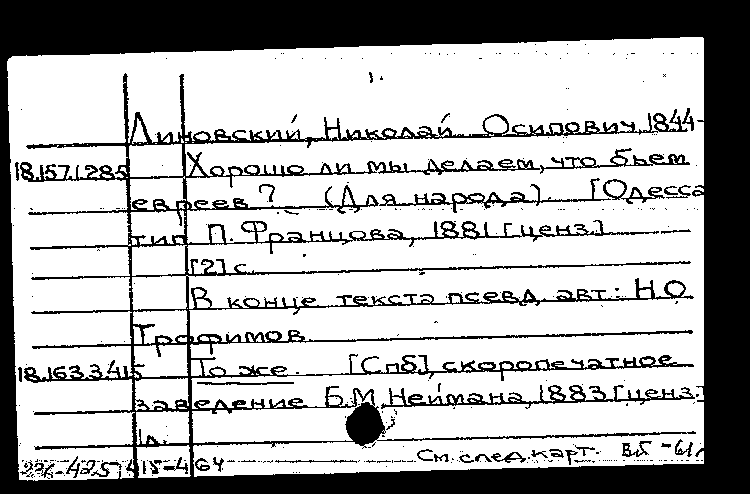 1.
Линовский, Николай Осипович, 1844-
18.157.1.285 Хорошо ли мы делаем, что бьем
евреев? (Для народа). [Одесса
тип П. Францова, 1881 [ценз.]
[2] с
В конце текста псевд. авт.: Н.О.
Трофимов
18.163.3.415 То же. [Спб], скоропечатное
заведение Б.М. Неймана, 1883 [ценз.]
1 л.
415-4 64 См. след. карт. ВБ-61